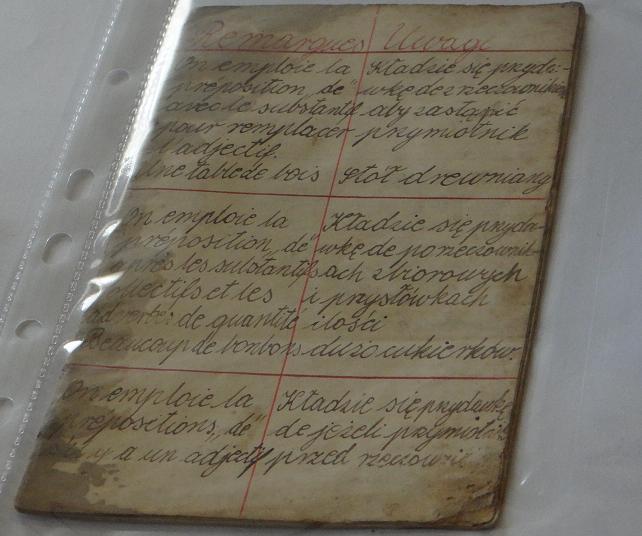 Remarques Uwagi
On emploie la
préposition „de"
avec le substantif
pour remplacer
l'adjectif.
Une table de bois
Kładzie się przyi-
wkę de z rzeczownikiem
aby zastąpić
przymiotnik
Stół drewniany
On emploie la
préposition „de"
après les substantifs
collectifs et les
adverbes de quantité
Beaucoup de bonbons
Kładzie się przyi-
wkę de po rzeczownik-
ach zbiorowych
i przysłówkach
ilości
dużo cukierków.
On emploie la
prépositions „de"
s'il y a un adjectif
Kładzie się przyimkę
de jeżeli przymiotnik
przed